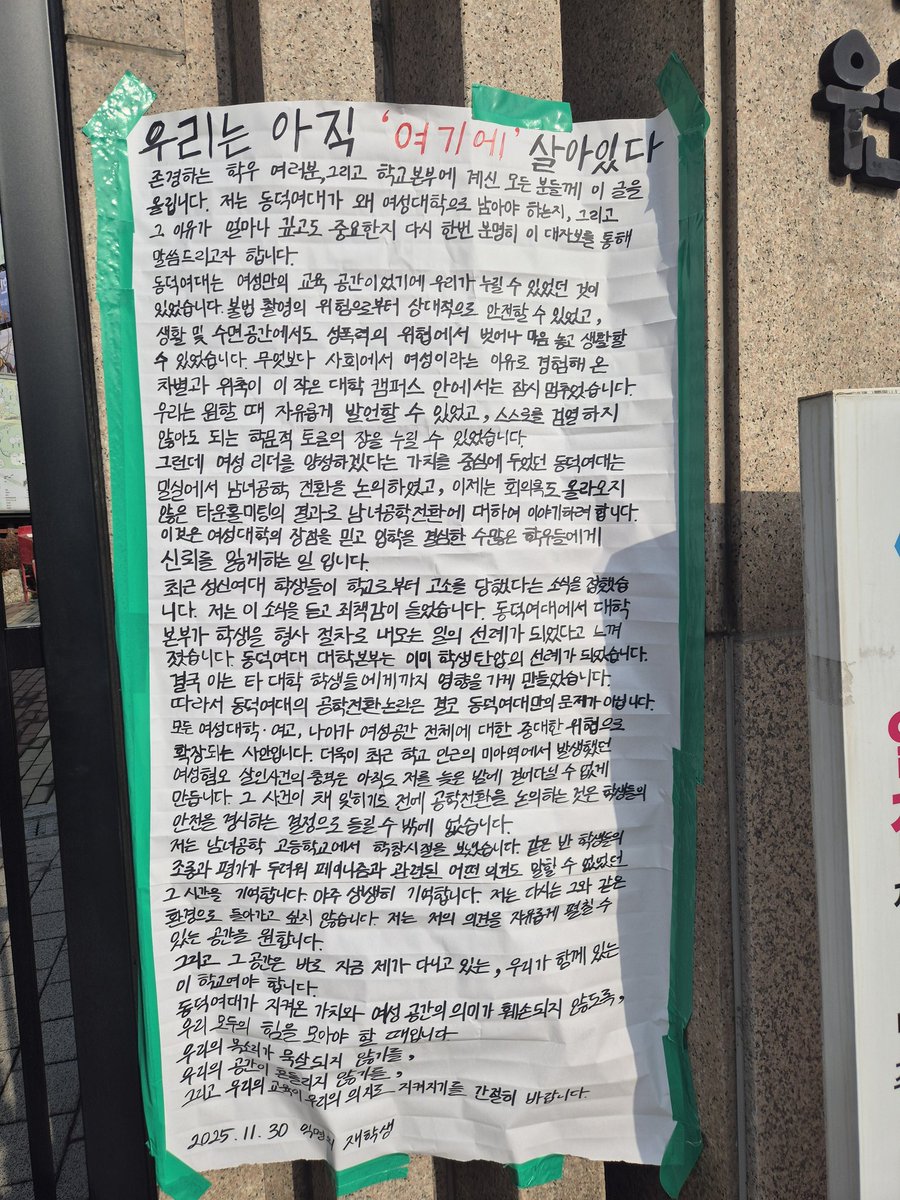 우리는 아직 '여기에' 살아있다
존경하는 학우 여러분, 그리고 학교본부에 계신 모든 분들께 이 글을
올립니다. 저는 동덕여대가 왜 여성대학으로 남아야 하는지, 그리고
그 이유가 얼마나 깊고도 중요한지 다시 한번 분명히 이 대자보를 통해
말씀드리고자 합니다.
동덕여대는 여성만의 교육 공간이었기에 우리가 누릴 수 있었던 것이
있었습니다. 불법 촬영의 위험으로부터 상대적으로 안전할 수 있었고,
생활 및 수면공간에서도 성폭력의 위협에서 벗어나 마음 놓고 생활할
수 있었습니다. 무엇보다 사회에서 여성이라는 이유로 경험해 온
차별과 위축이 이 작은 대학 캠퍼스 안에서는 잠시 멈추었습니다.
우리는 원할 때 자유롭게 발언할 수 있었고, 스스로를 검열하지
않아도 되는 학문적 토론의 장을 누릴 수 있었습니다.
그런데 여성 리더를 양성하겠다는 가치를 중심에 두었던 동덕여대는
밀실에서 남녀공학 전환을 논의하였고, 이제는 회의록도 올라오지
않은 타운홀미팅의 결과로 남녀공학전환에 대하여 이야기하려 합니다.
이것은 여성대학의 장점을 믿고 입학을 결심한 수많은 학우들에게
신뢰를 잃게하는 일 입니다.
최근 성신여대 학생들이 학교로부터 고소를 당했다는 소식을 접했습
니다. 저는 이 소식을 듣고 죄책감이 들었습니다. 동덕여대에서 대학
본부가 학생을 형사 절차로 내모는 일의 선례가 되었다고 느껴
졌습니다. 동덕여대 대학본부는 이미 학생탄압의 선례가 되었습니다.
결국 이는 타 대학 학생들에게까지 영향을 가게 만들었습니다.
따라서 동덕여대의 공학전환논란은 결코 동덕여대만의 문제가 아닙니다.
모든 여성대학·여고, 나아가 여성공간 전체에 대한 중대한 위협으로
확장되는 사안입니다. 더욱이 최근 학교 인근의 미아역에서 발생했던
여성혐오 살인사건의 충격은 아직도 저를 늦은 밤에 걸어다닐 수 없게
만듭니다. 그 사건이 채 잊히기도 전에 공학전환을 논의하는 것은 학생들의
안전을 경시하는 결정으로 들릴 수 밖에 없습니다.
저는 남녀공학 고등학교에서 학창시절을 보냈습니다. 같은 반 학생들의
조롱과 평가가 두려워 페미니즘과 관련된 어떤 의견도 말할 수 없었던
그 시간을 기억합니다. 아주 생생히 기억합니다. 저는 다시는 그와 같은
환경으로 돌아가고 싶지 않습니다. 저는 저의 의견을 자유롭게 펼칠 수
있는 공간을 원합니다.
그리고 그 공간은 바로 지금 제가 다니고 있는, 우리가 함께 있는
이 학교여야 합니다.
동덕여대가 지켜온 가치와 여성 공간의 의미가 훼손되지 않도록,
우리 모두의 힘을 모아야 할 때입니다.
우리의 목소리가 묵살되지 않기를,
우리의 공간이 흔들리지 않기를,
그리고 우리의 교육이 우리의 의지로 지켜지기를 간절히 바랍니다.
2025.11.30 익명의 재학생